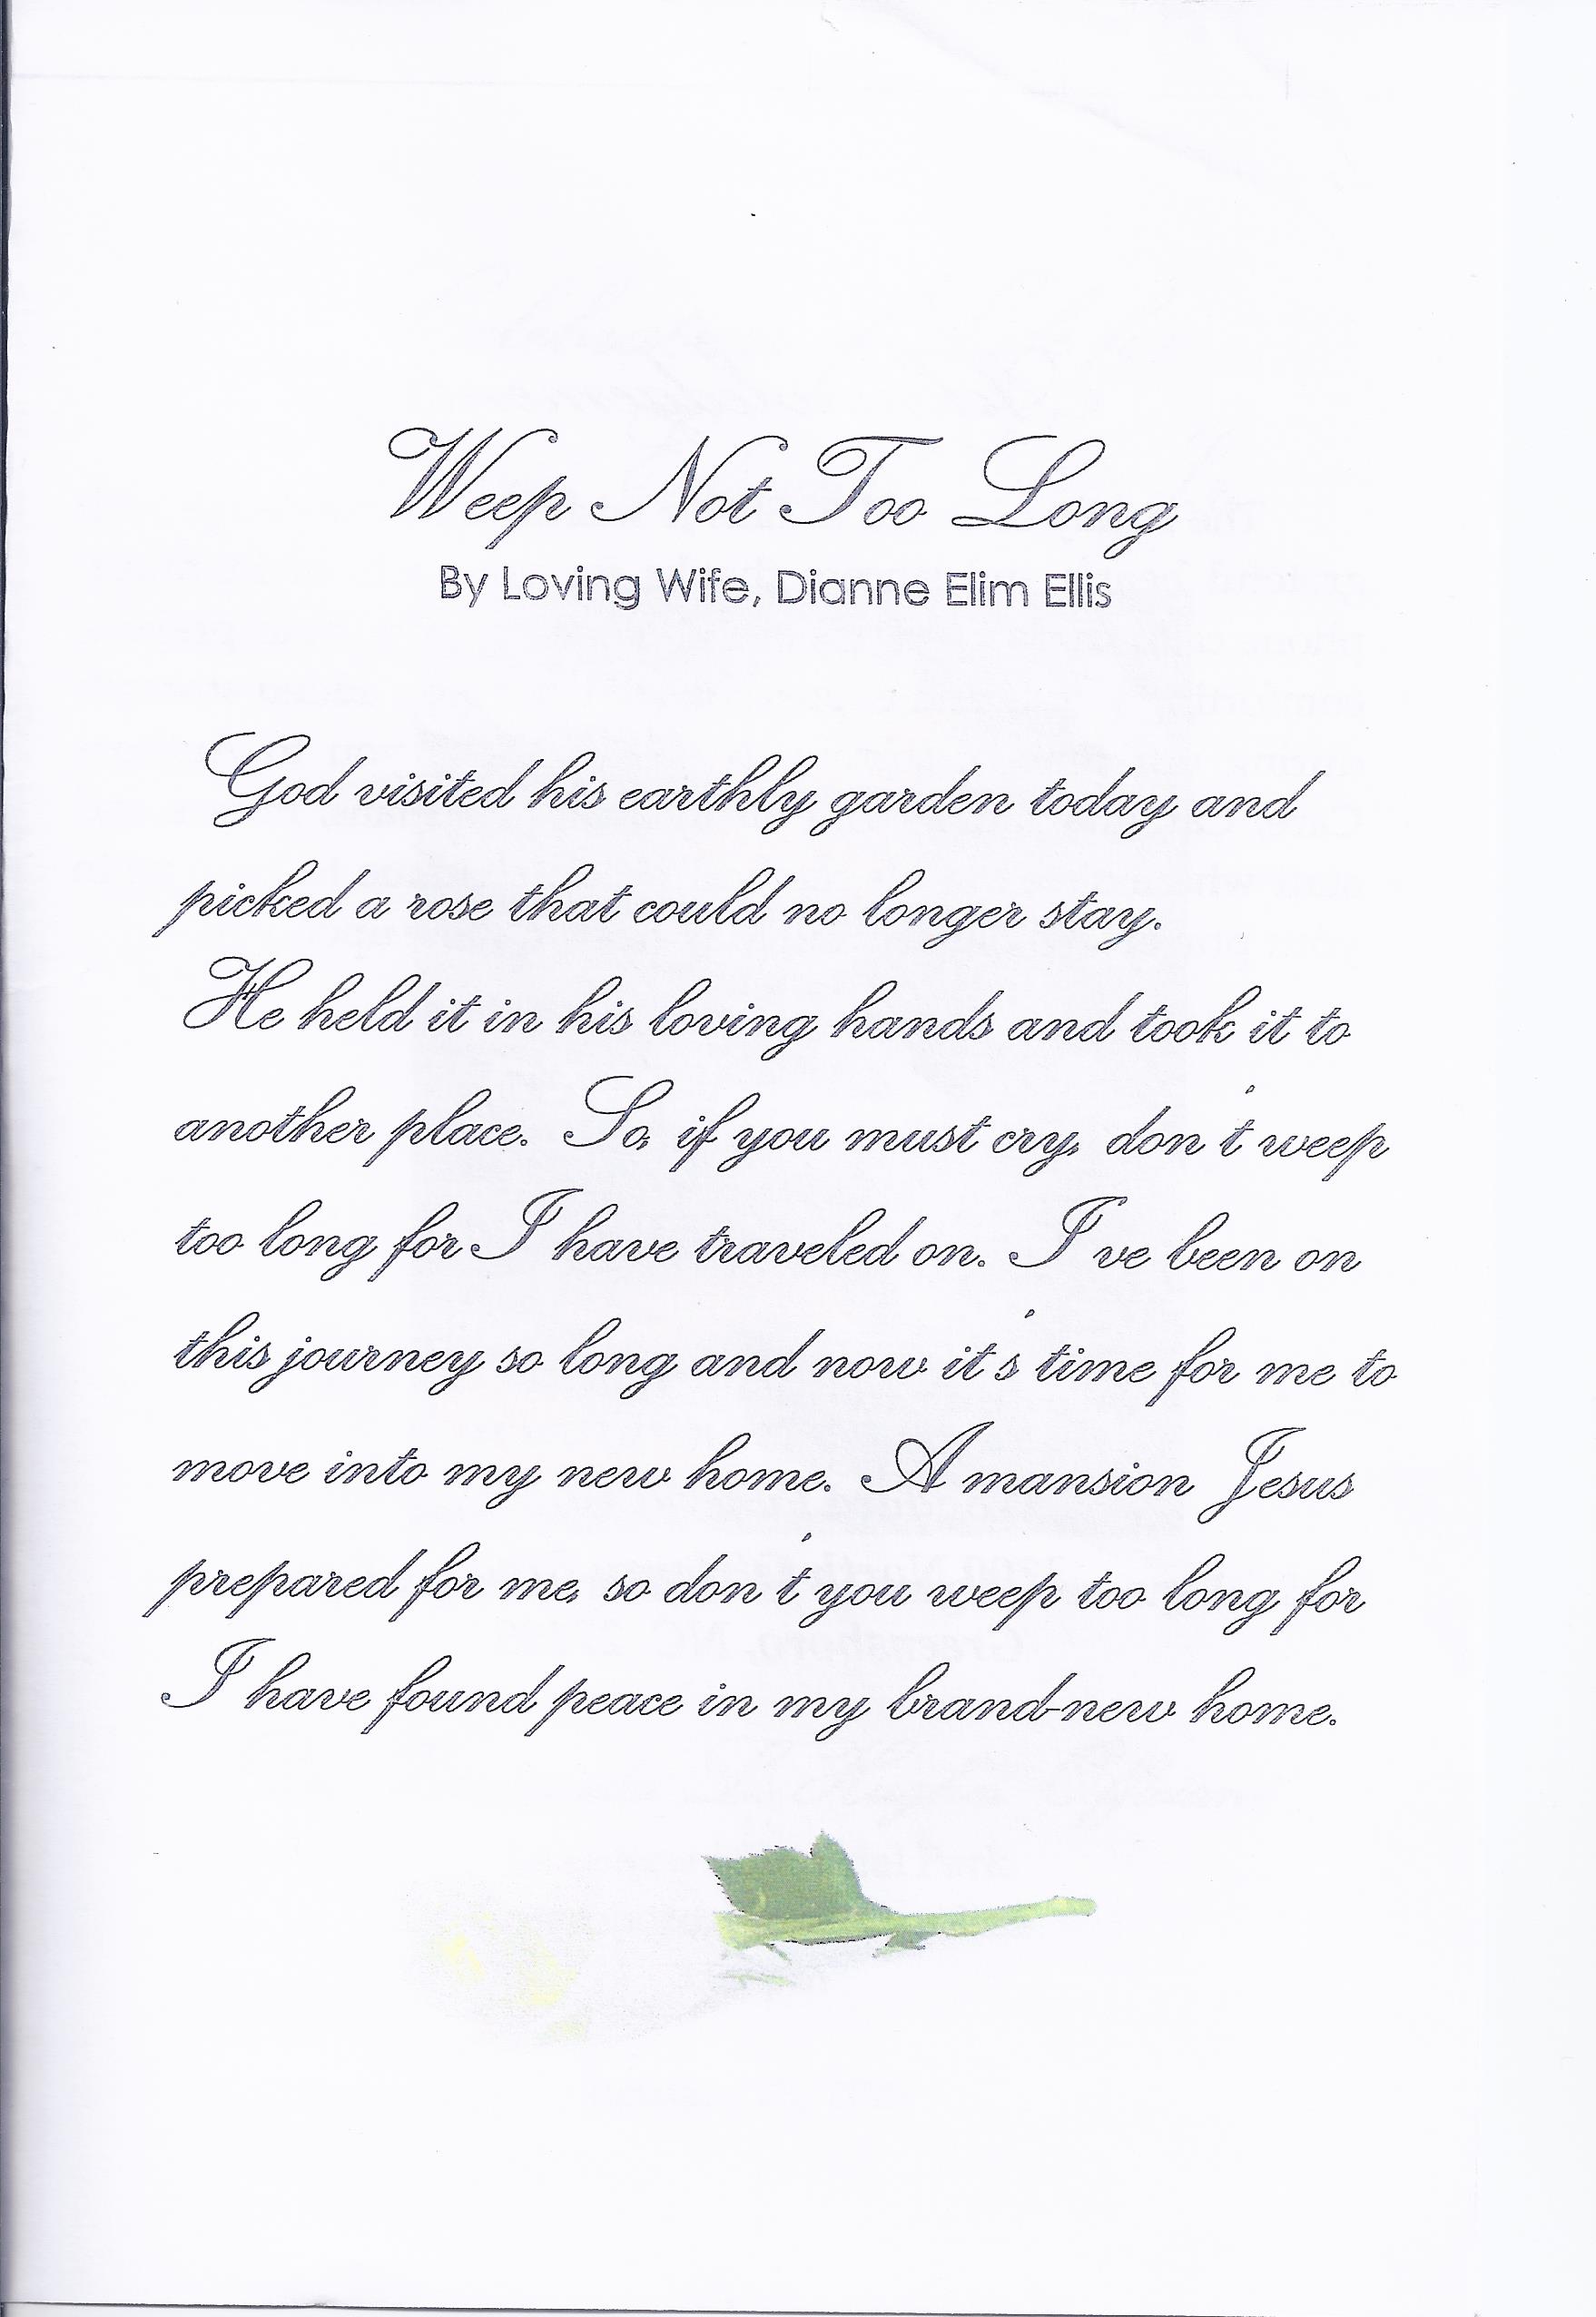 Weep Not Too Long
By Loving Wife, Dianne Elim Ellis
God visited his earthly garden today and
picked a rose that could no longer stay.
He held it in his loving hands and took it to
another place. So, if you must cry, don't weep
too long for I have traveled on. I've been on
this journey so long and now it's time for me to
move into my new home. A mansion Jesus
prepared for me, so don't you weep too long for
I have found peace in my brand-new home.